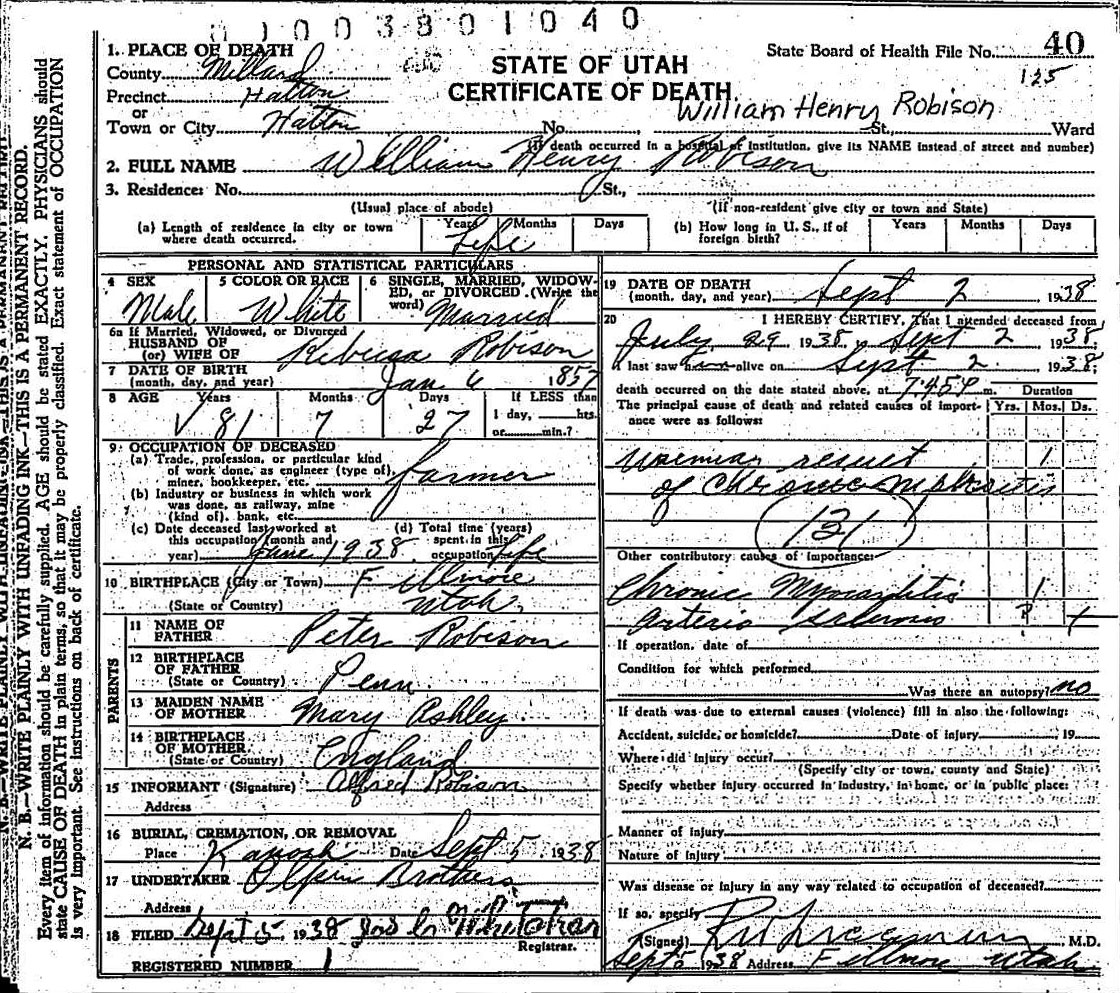 1003801040
1. PLACE OF DEATH
County Millard
Precinct Hatton
or
Town or City Hatton No. St., Ward
STATE OF UTAH
CERTIFICATE OF DEATH
State Board of Health File No. 40
125
William Henry Robison
(If death occurred in a hospital or institution, give its NAME instead of street and number)
2. FULL NAME William Henry Robison
3. Residence: No. St.,
(Usual place of abode) (If non-resident give city or town and State)
(a) Length of residence in city or town where death occurred. Years Life Months Days
(b) How long in U. S., if of foreign birth? Years Months Days
PERSONAL AND STATISTICAL PARTICULARS
4 SEX Male
5 COLOR OR RACE White
6 SINGLE, MARRIED, WIDOWED, or DIVORCED (Write the word) Married
6a If Married, Widowed, or Divorced
HUSBAND OF
(or) WIFE OF Rebecca Robison
7 DATE OF BIRTH
(month, day, and year) Jan 6 1857
8 AGE Years 81 Months 7 Days 27 If LESS than 1 day, hrs. or min.?
9 OCCUPATION OF DECEASED
(a) Trade, profession, or particular kind of work done, as engineer (type of), miner, bookkeeper, etc. farmer
(b) Industry or business in which work was done, as railway, mine (kind of), bank, etc.
(c) Date deceased last worked at this occupation (month and year) June 1938
(d) Total time (years) spent in this occupation life
10 BIRTHPLACE (City or Town) Fillmore
(State or Country) Utah
PARENTS
11 NAME OF FATHER Peter Robison
12 BIRTHPLACE OF FATHER
(State or Country) Penn.
13 MAIDEN NAME OF MOTHER Mary Ashley
14 BIRTHPLACE OF MOTHER
(State or Country) England
15 INFORMANT (Signature) Alfred Robison
Address
16 BURIAL, CREMATION, OR REMOVAL
Place Kanosh Date Sept 5 1938
17 UNDERTAKER Olpin Brothers
Address
18 FILED Sept 5, 1938
Registrar.
REGISTERED NUMBER 1
19 DATE OF DEATH
(month, day, and year) Sept 2 1938
20 I HEREBY CERTIFY, That I attended deceased from
July 29 1938, to Sept 2 1938,
I last saw h alive on Sept 2 1938,
death occurred on the date stated above, at 7:45P m. Duration
The principal cause of death and related causes of importance were as follows: Yrs. Mos. Ds.
Uremia result 1
of Chronic nephritis
131
Other contributory causes of importance:
Chronic Myocarditis 1
Arterio sclerosis ? +
If operation, date of
Condition for which performed
Was there an autopsy? no
If death was due to external causes (violence) fill in also the following:
Accident, suicide, or homicide? Date of injury , 19
Where did injury occur?
(Specify city or town, county and State)
Specify whether injury occurred in industry, in home, or in public place:
Manner of injury
Nature of injury
Was disease or injury in any way related to occupation of deceased?
If so, specify
(Signed) , M.D.
Sept 5 1938 Address Fillmore Utah
N. B.—WRITE PLAINLY WITH UNFADING INK—THIS IS A PERMANENT RECORD.
Every item of information should be carefully supplied. AGE should be stated EXACTLY. PHYSICIANS should
state CAUSE OF DEATH in plain terms, so that it may be properly classified. Exact statement of OCCUPATION
is very important. See instructions on back of certificate.